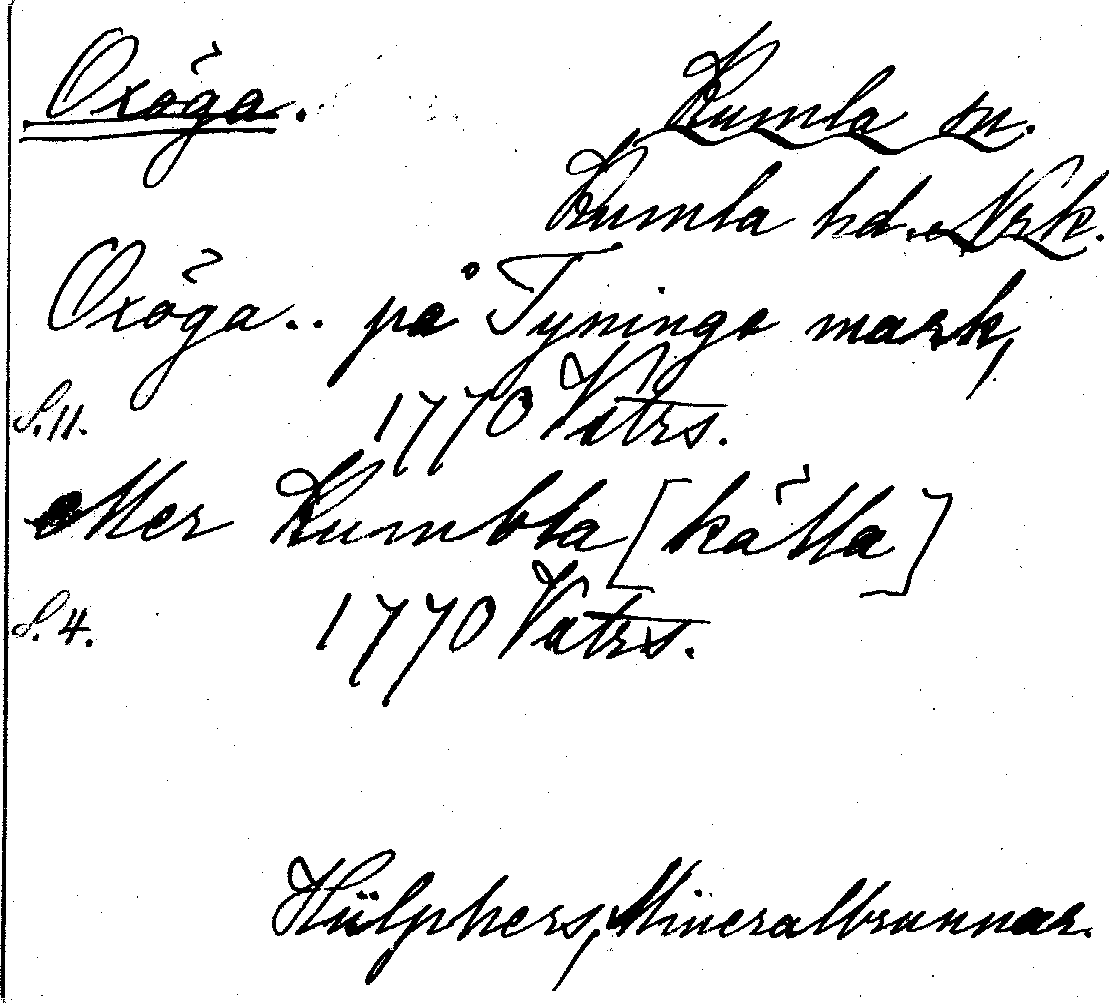 Oxöga.
Kumla sn.
Kumla hd. Nrk.
Oxöga.. på Tyninge mark,
S. 11. 1770 Vatrs.
eller Kumbla [källa]
S. 4. 1770 Vatrs.
Hülphers, Mineralbrunnar.